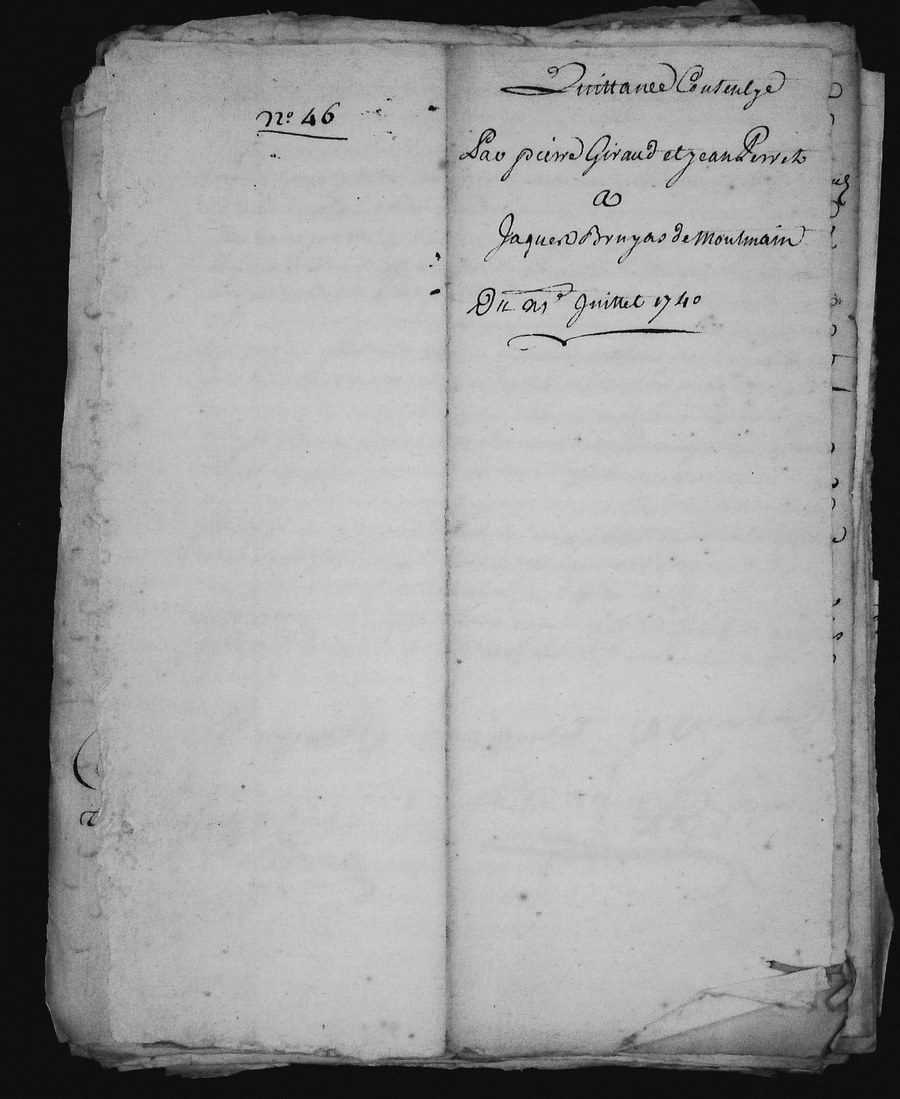 No. 46
Quittance
Par pierre Giraud et jean Perret
a
Jaques Bruyas de Moulinain
Du 21e Juillet 1740